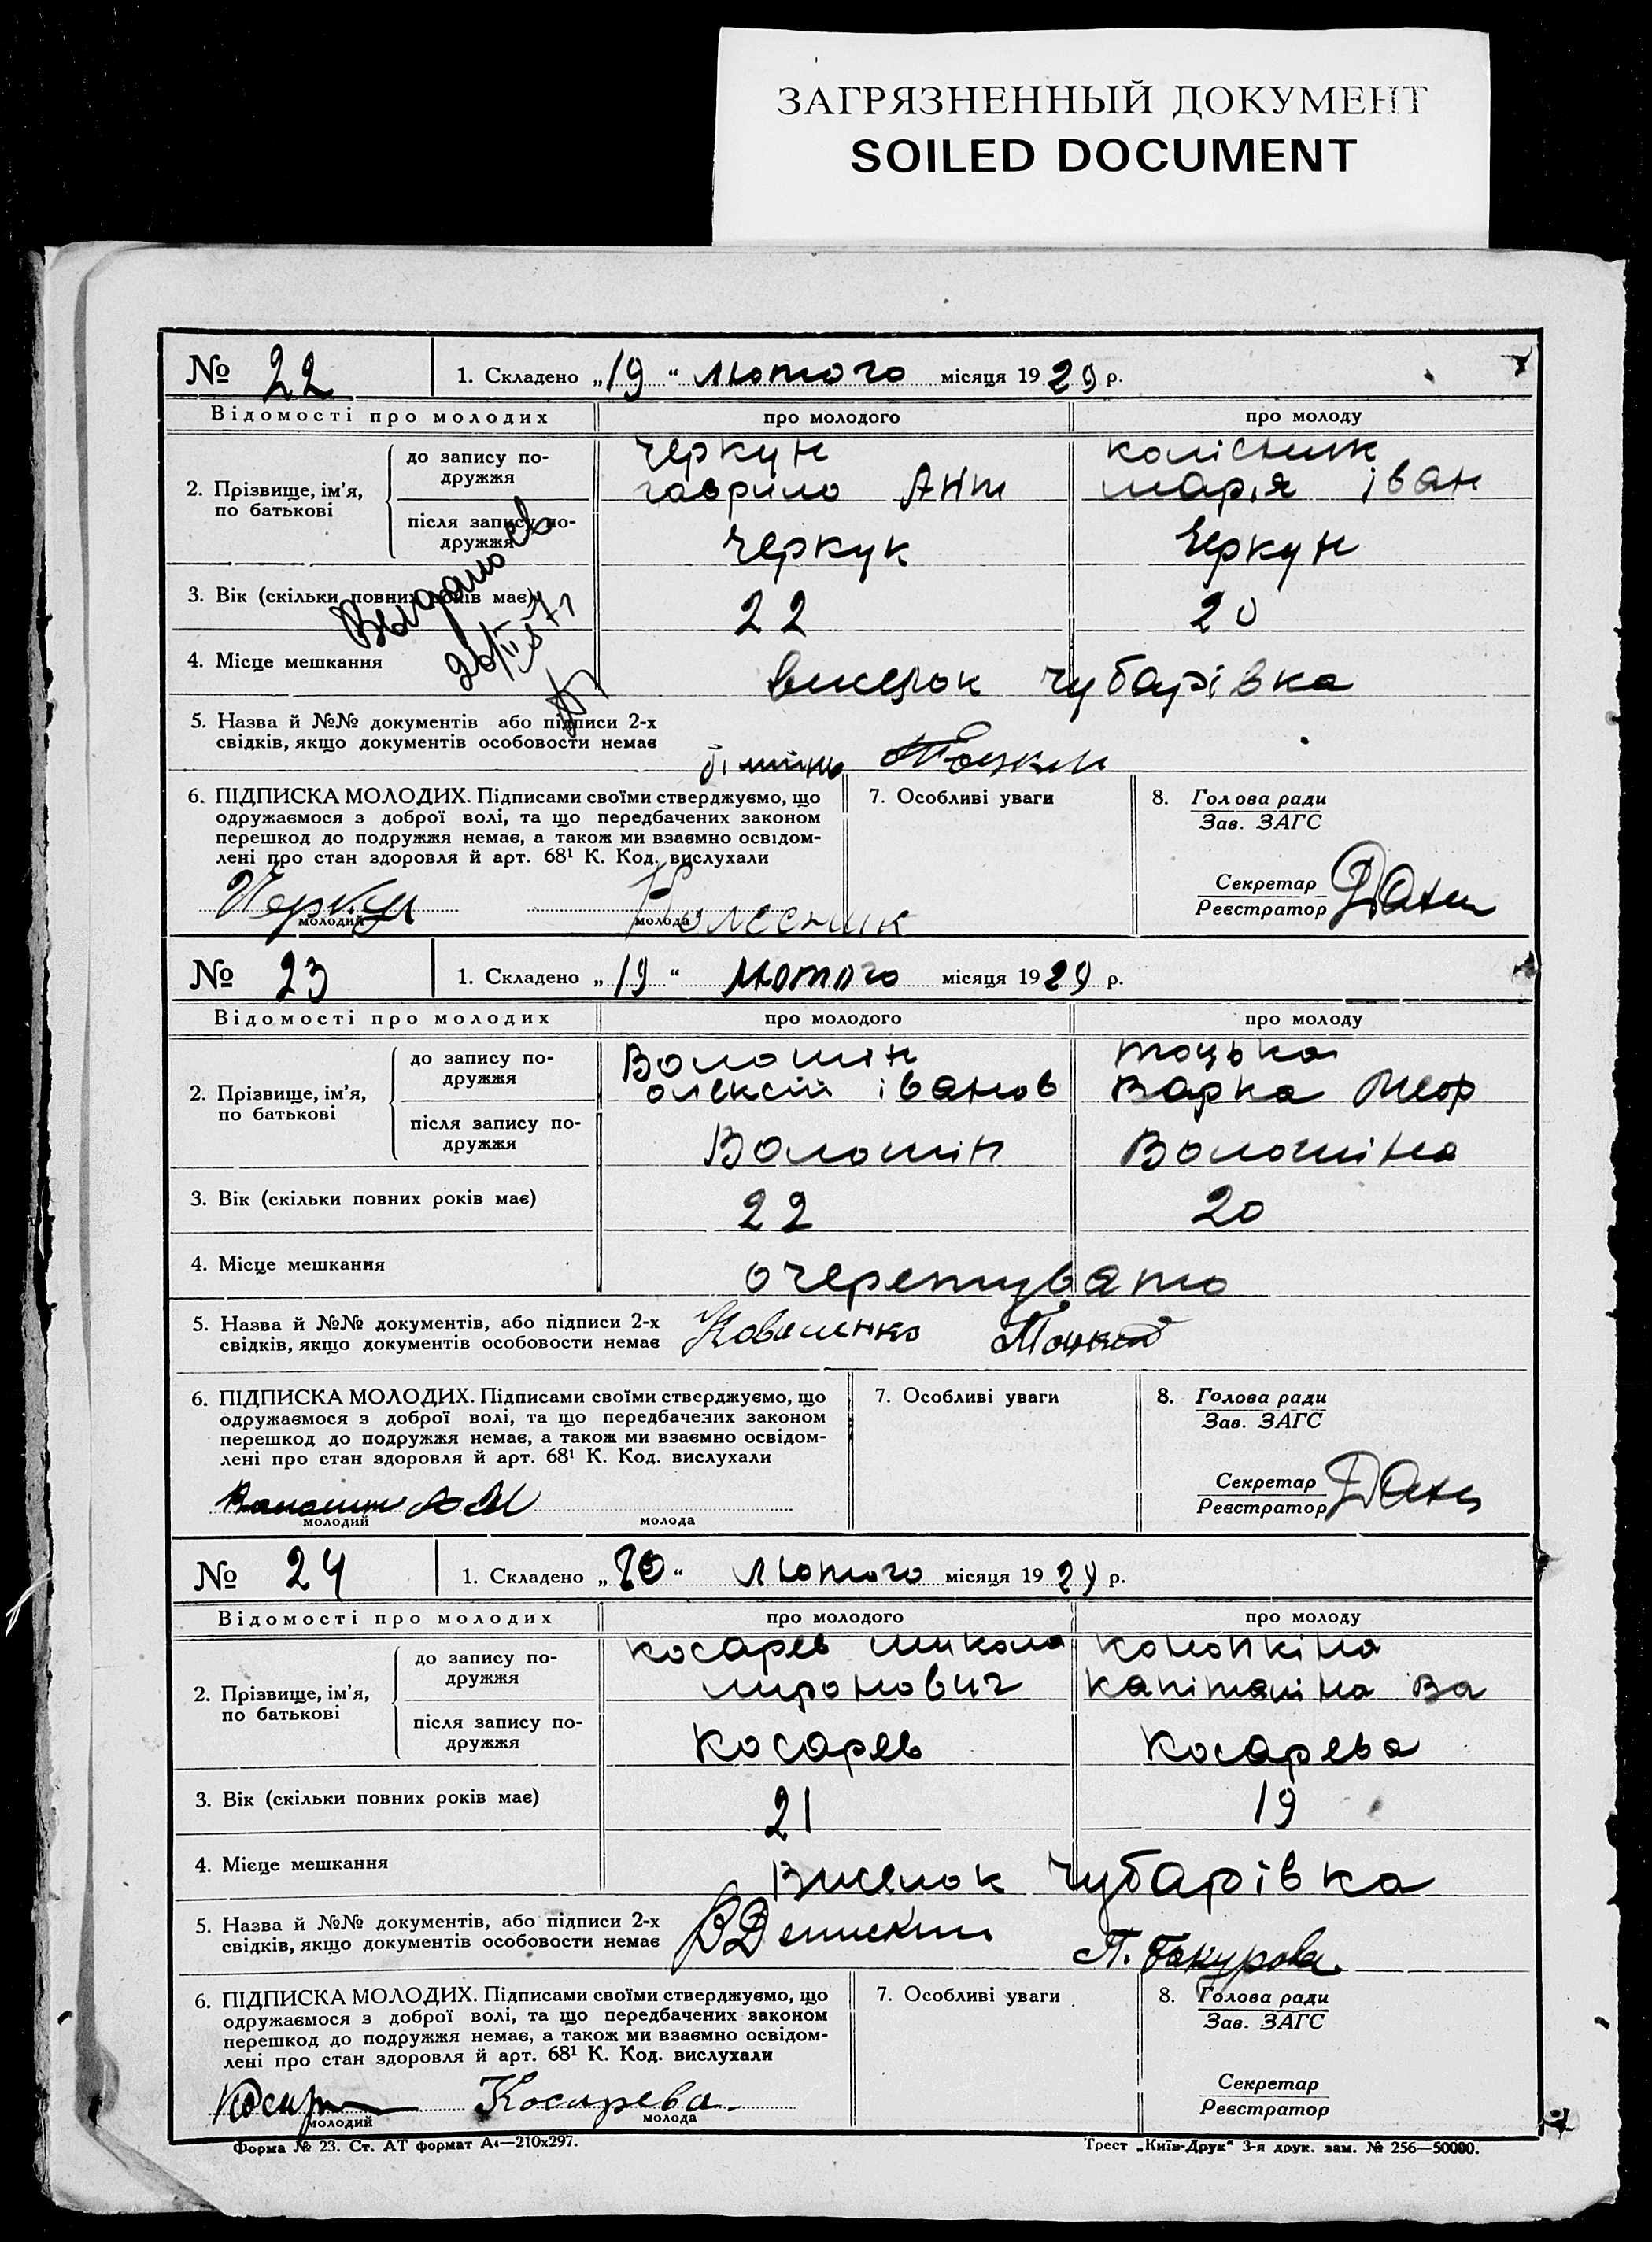 ЗАГРЯЗНЕННЫЙ ДОКУМЕНТ
SOILED DOCUMENT
№ 22 1. Складено „19“ лютого місяця 1929 р.
Відомості про молодих про молодого про молоду
2. Прізвище, ім'я, по батькові
до запису подружжя
черкун колісник
гаврило Ант марія іван
після запису по-
дружжя
черкук Черкун
Выдано св
26/II 71
3. Вік (скільки повних років має) 22 20
4. Місце мешкання виселок чубарівка
5. Назва й №№ документів або підписи 2-х
свідків, якщо документів особовости немає
6. ПІДПИСКА МОЛОДИХ. Підписами своїми стверджуємо, що
одружаємося з доброї волі, та що передбачених законом
перешкод до подружжя немає, а також ми взаємно освідом-
лені про стан здоровля й арт. 68¹ К. Код. вислухали
Черкун Колесник
молодий молода
7. Особливі уваги
8. Голова ради
Зав. ЗАГС
Секретар
Реєстратор
№ 23 1. Складено „19“ Лютого місяця 1929 р.
Відомості про молодих про молодого про молоду
2. Прізвище, ім'я,
по батькові
до запису по-
дружжя
Волошін тоцька
олексій іванов Варка
після запису по-
дружжя
Волошін Волошіна
3. Вік (скільки повних років має) 22 20
4. Місце мешкання очеретувато
5. Назва й №№ документів, або підписи 2-х
свідків, якщо документів особовости немає
Коваленко
6. ПІДПИСКА МОЛОДИХ. Підписами своїми стверджуємо, що
одружаємося з доброї волі, та що передбачених законом
перешкод до подружжя немає, а також ми взаємно освідом-
лені про стан здоровля й арт. 68¹ К. Код. вислухали
молодий молода
7. Особливі уваги
8. Голова ради
Зав. ЗАГС
Секретар
Реєстратор
№ 24 1. Складено „20“ лютого місяця 1929 р.
Відомості про молодих про молодого про молоду
2. Прізвище, ім'я,
по батькові
до запису по-
дружжя
косарев микола конопкіна
миронович капіталіна Ва
після запису по-
дружжя
Косарев Косарева
3. Вік (скільки повних років має) 21 19
4. Місце мешкання Виселок Чубарівка
5. Назва й №№ документів, або підписи 2-х
свідків, якщо документів особовости немає
П. Бакурова
6. ПІДПИСКА МОЛОДИХ. Підписами своїми стверджуємо, що
одружаємося з доброї волі, та що передбачених законом
перешкод до подружжя немає, а також ми взаємно освідом-
лені про стан здоровля й арт. 68¹ К. Код. вислухали
Косарева
молодий молода
7. Особливі уваги
8. Голова ради
Зав. ЗАГС
Секретар
Реєстратор
Форма № 23. Ст. АТ формат А4—210х297. Трест „Київ-Друк“ 3-я друк. зам. № 256—50000.